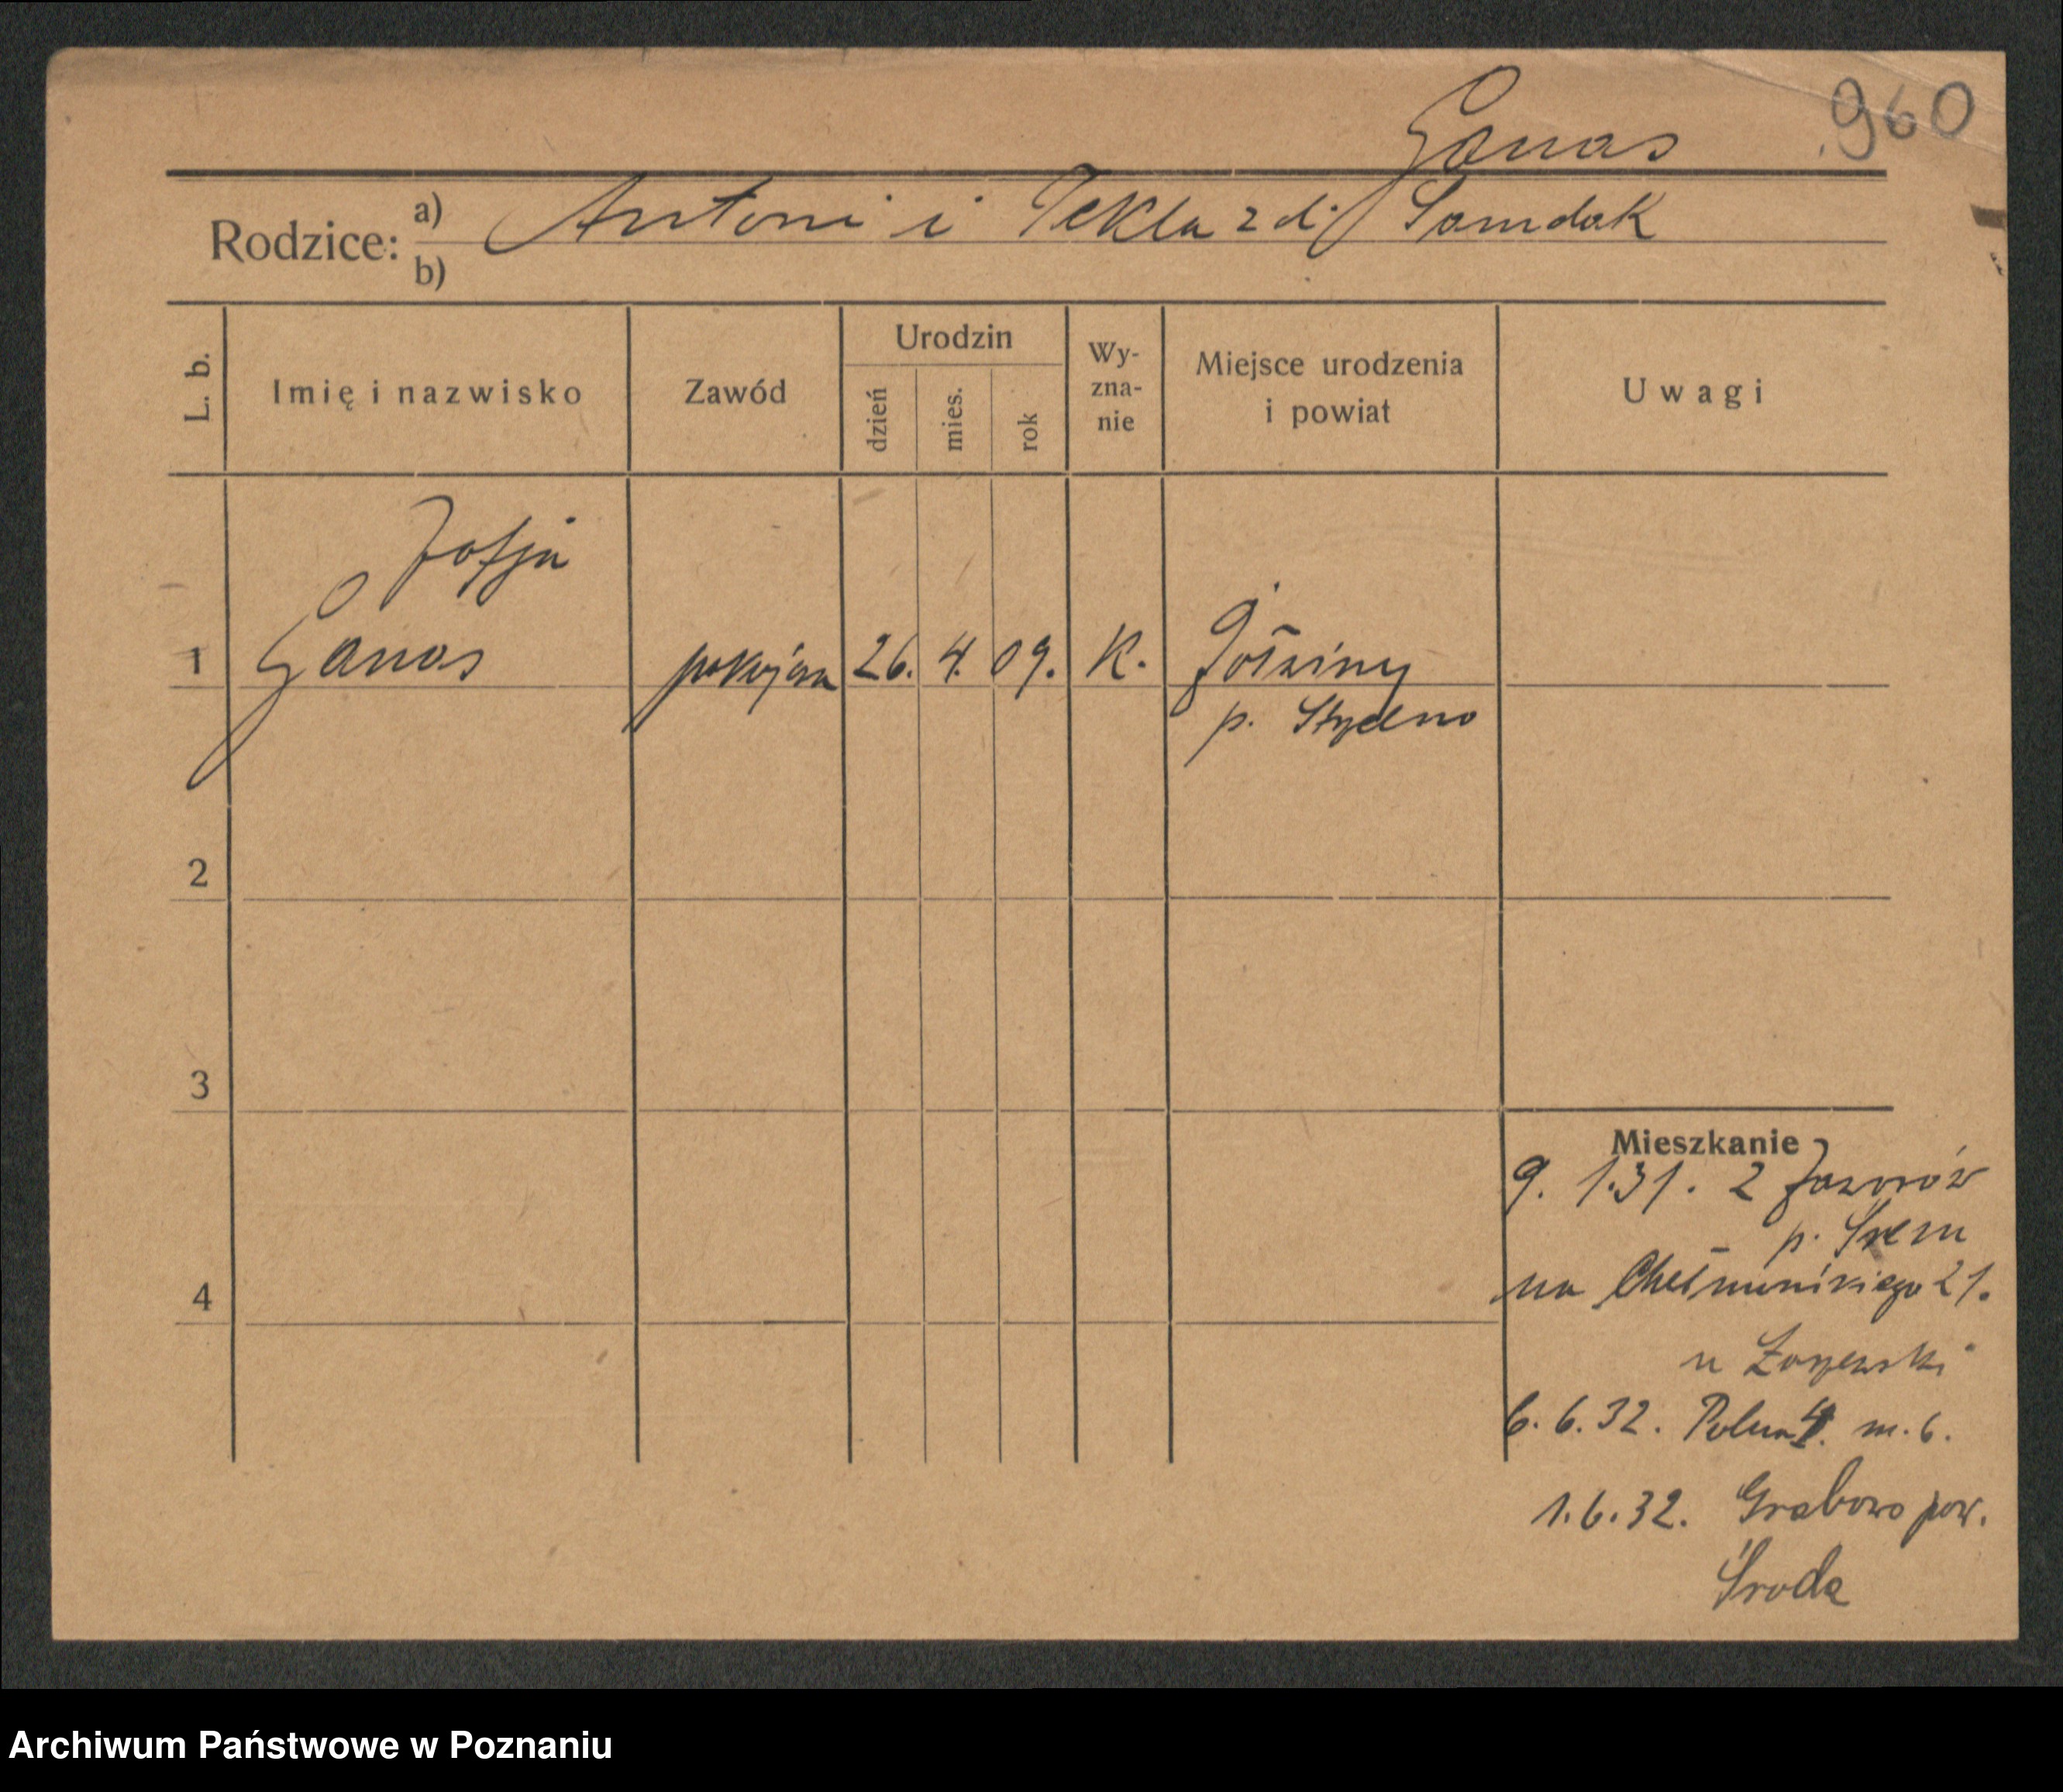 960
Ganas
Rodzice: a) Antoni i Tekla z d. Samdak
b)
L. b.
Imię i nazwisko
Zawód
Urodzin
dzień
mies.
rok
Wy-
zna-
nie
Miejsce urodzenia
i powiat
Uwagi
Zofja
1 Ganas pokojowa 26. 4. 09. K.
p.
2
3
4
Mieszkanie
9. 1.31. z Jaworów
p. Śrem
na 21.
u
6.6.32. Polna 4. m. 6.
1.6.32. Grabowo pow.
Środa
Archiwum Państwowe w Poznaniu